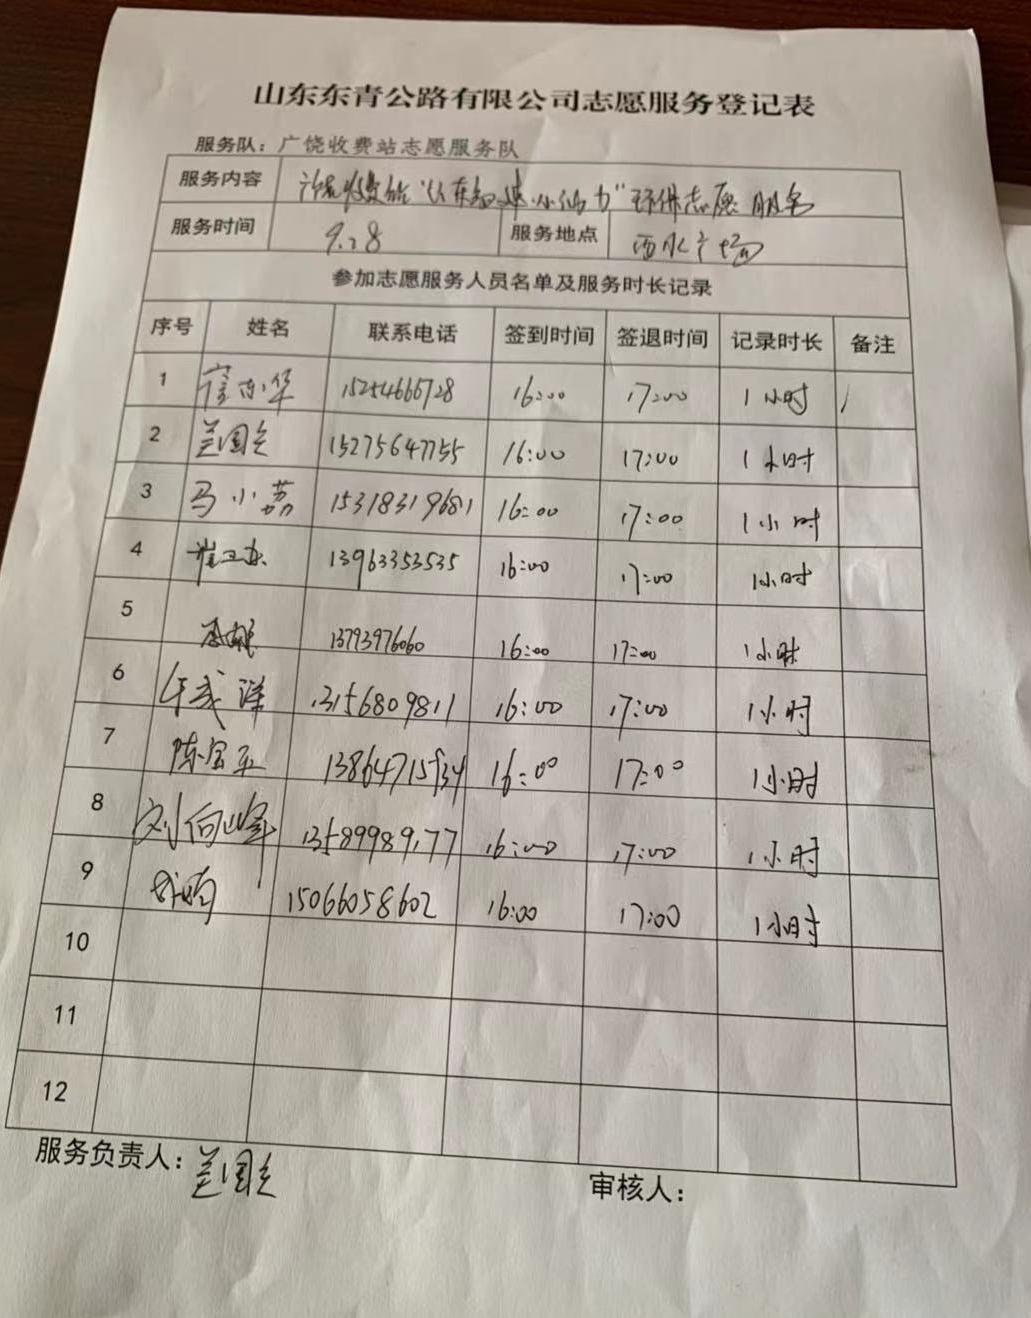 山东东青公路有限公司志愿服务登记表
服务队：广饶收费站志愿服务队
服务内容 "山东高速小仙力"环保志愿服务
服务时间 9.28 服务地点 西水广场
参加志愿服务人员名单及服务时长记录
序号 姓名 联系电话 签到时间 签退时间 记录时长 备注
1 15254666728 16:00 17:00 1小时 /
2 兰国 15275647755 16:00 17:00 1小时
3 马小荔 15318319681 16:00 17:00 1小时
4 崔卫东 13963353535 16:00 17:00 1小时
5 13793976060 16:00 17:00 1小时
6 13156809811 16:00 17:00 1小时
7 陈宝军 13864715934 16:00 17:00 1小时
8 刘向峰 13589989177 16:00 17:00 1小时
9 15066058602 16:00 17:00 1小时
10
11
12
服务负责人：兰国
审核人：